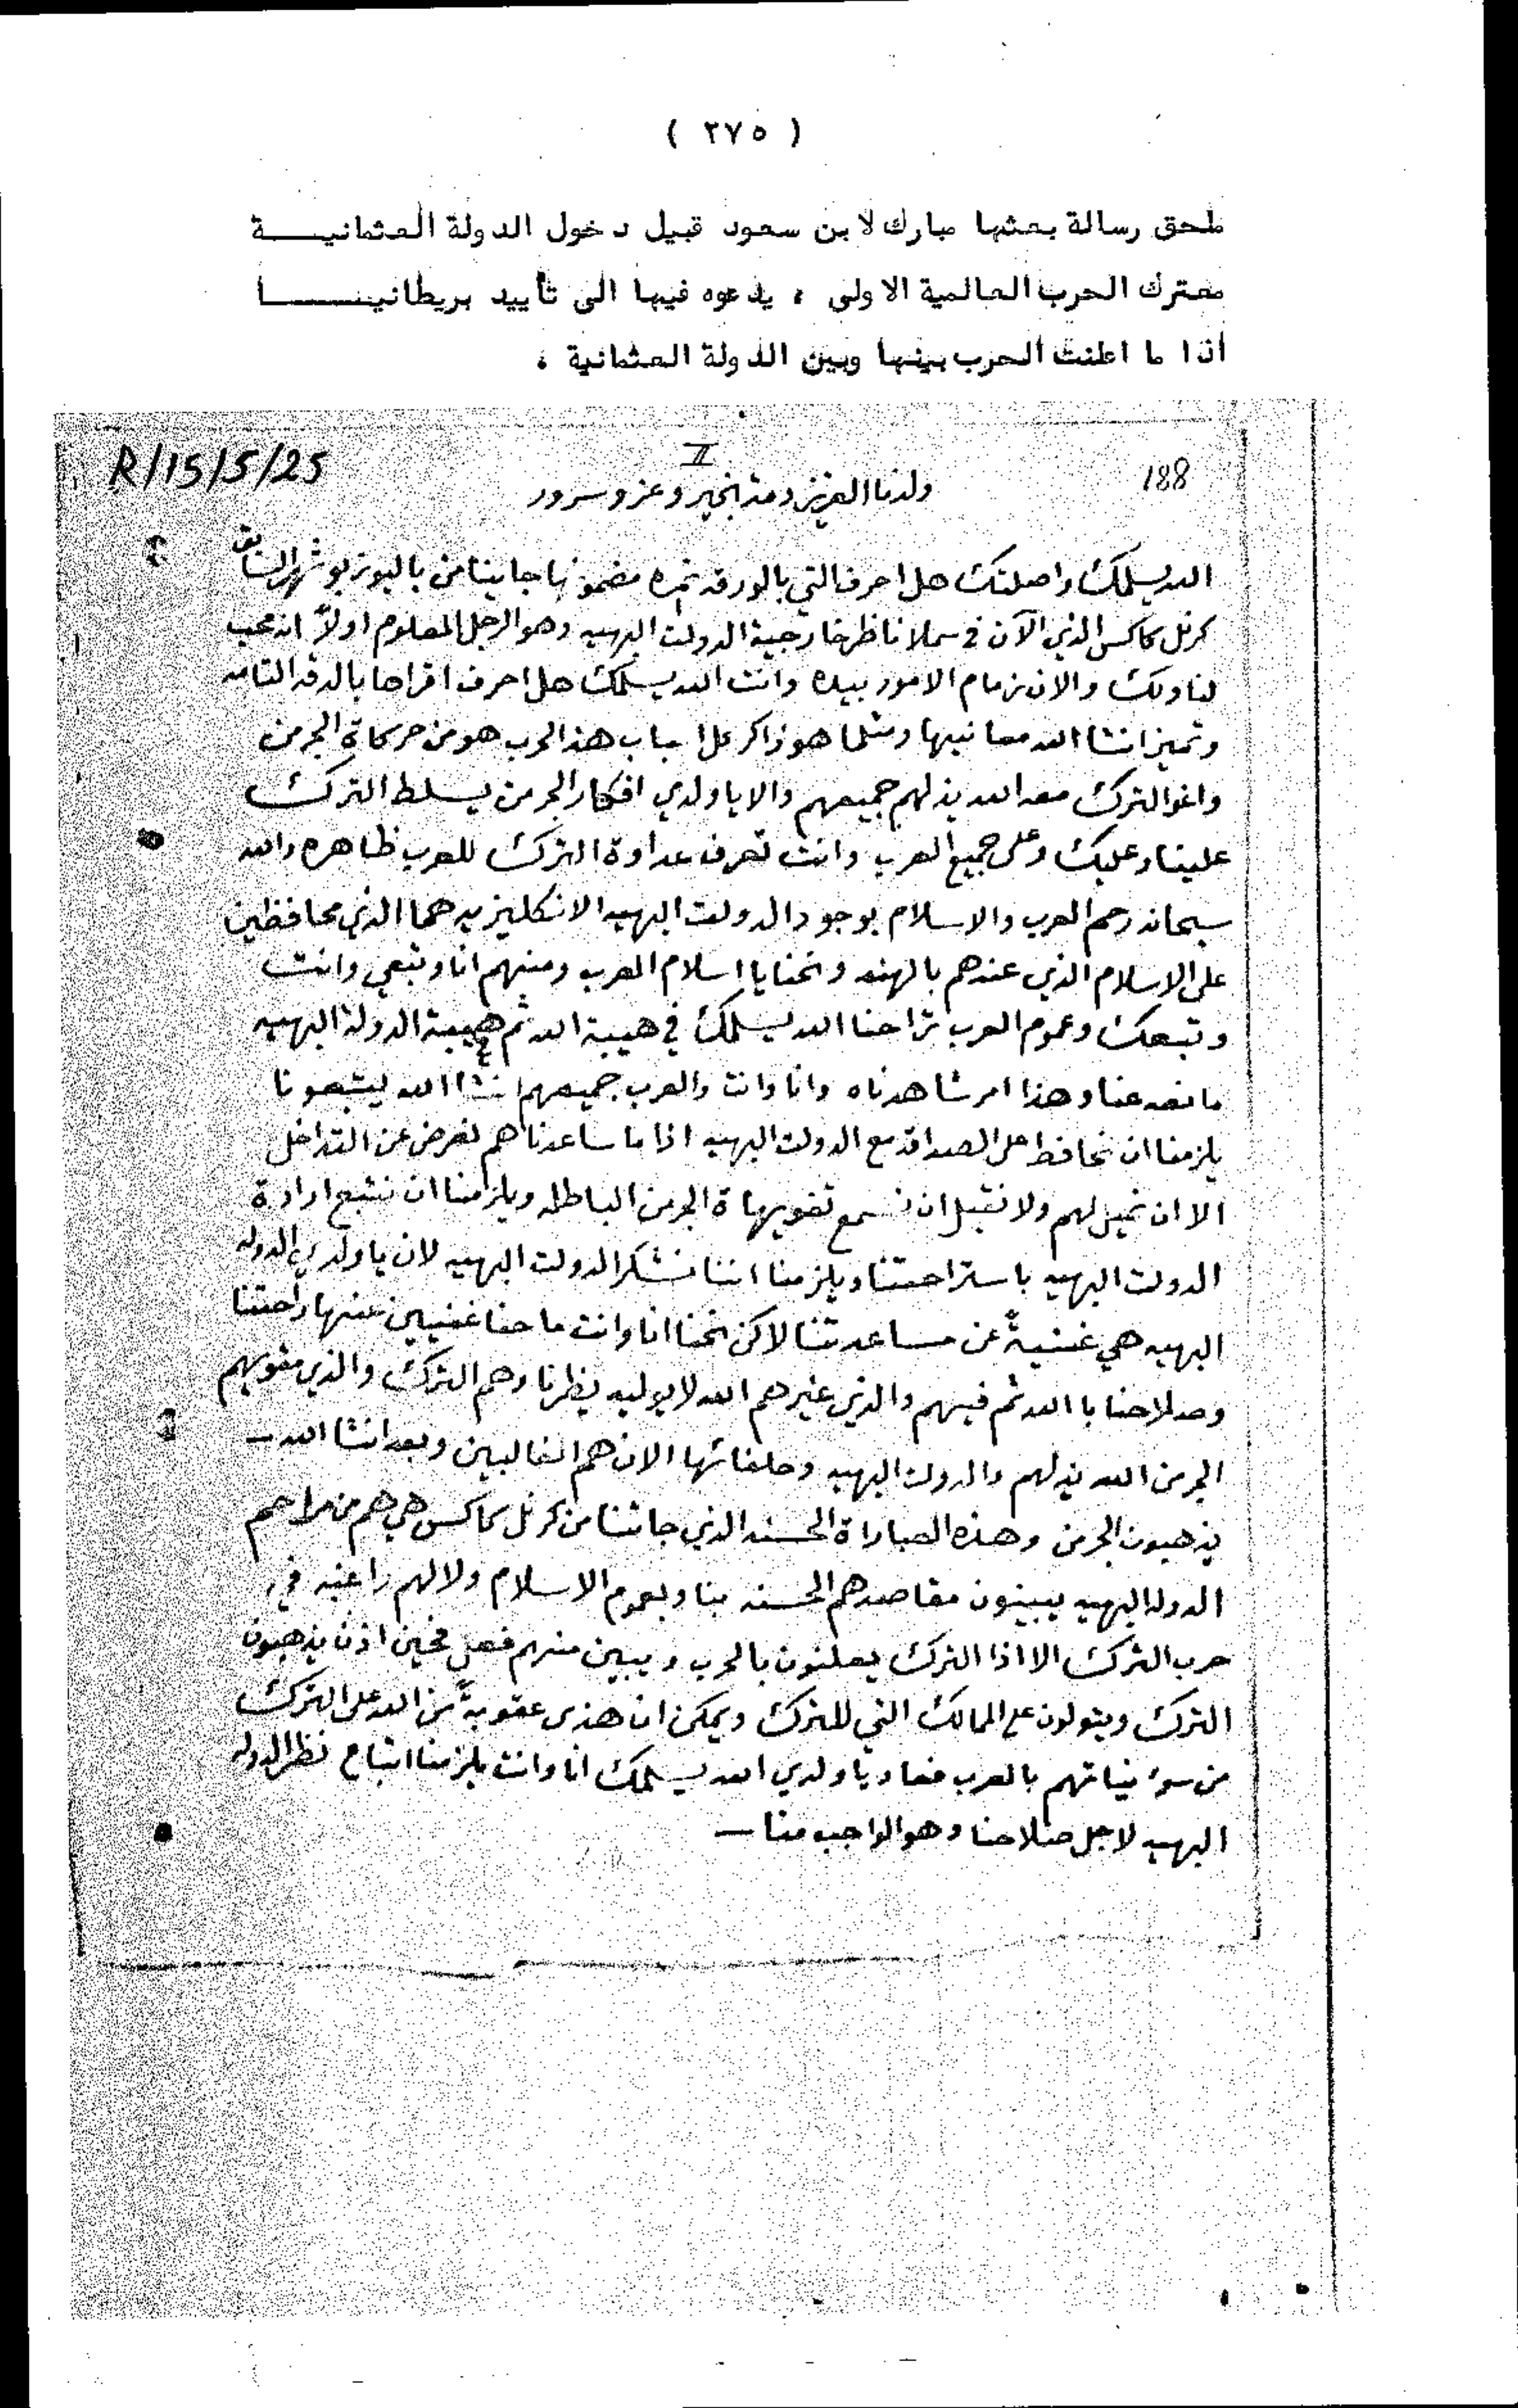 ( ٢٧٥ )
ملحق رسالة بعثها مبارك لابن سعود قبيل دخول الدولة العثمانية
معترك الحرب العالمية الاولى ، يدعوه فيها الى تأييد بريطانيا
اذا ما اعلنت الحرب بينها وبين الدولة العثمانية .
R/15/5/25
II
188
ولدنا العزيز دمت بخير وعز وسرور
الله يسلمك واصلتك هل احرف التي بالورقه نمره مضمونها جايينا من باليوز بوشهر السابق
كرنل كاكس الذي الآن في سملا ناظر خارجية الدولت البهيه وهو الرجل المعلوم اولاً انه محب
لنا ولك والان زمام الامور بيده وانت الله يسلمك هل احرف اقراها بالدقه التامه
وتميز انشا الله معانيها ومثلما هو ذاكر علا اسباب هذا الحرب هو من حركاة الجرمن
واغوا الترك معه الله يذلهم جميعهم والا يا ولدي افكار الجرمن يسلط الترك
علينا وعليك وعلى جميع العرب وانت تعرف عداوة الترك للعرب ظاهره والله
سبحانه رحم العرب والاسلام بوجود الدولت البهيه الانكليزيه هما الذي محافظين
على الاسلام الذي عندهم بالهند ونحنا يا اسلام العرب ومنهم انا وتبعي وانت
وتبعك وعموم العرب ترا حنا الله يسلمك في هيبة الله ثم هيبة الدولة البهيه
مانعه عنا وهذا امر شاهدناه وانا وانت والعرب جميعهم انشا الله يتبعونا
يلزمنا ان نحافظ على الصداقه مع الدولت البهيه اذا ما ساعدناهم لغرض عن التداخل
الا ان نميل لهم ولا نقبل ان نسمع تفويهاة الجرمن الباطله ويلزمنا ان نتبع ارادة
الدولت البهيه باستراحتنا ويلزمنا اننا نشكر الدولت البهيه لان يا ولدي الدوله
البهيه هي غنيةً عن مساعدتنا لاكن نحنا انا وانت ما حنا غنيين عنها راحتنا
وصلاحنا با الله ثم فيهم والذي غيرهم الله لا يوليه ينظرنا وهم الترك والذي مقويهم
الجرمن الله يذلهم والدولت البهيه وحلفائها الان هم الغالبين وبعد انشا الله
يذهبون الجرمن وهذه العباراة الحسنه الذي جاتنا من كرنل كاكس هي هم من مراحم
الدوله البهيه يبينون مقاصدهم الحسنه بنا وبعموم الاسلام ولا لهم راغبه في
حرب الترك الا اذا الترك يعلنون بالحرب ويبين منهم فعل فحين اذن يذهبون
الترك ويتولون على الممالك التي للترك ويمكن ان هذى عقوبةً من الله على الترك
من سوء نياتهم بالعرب يا ولدي الله يسلمك انا وانت يلزمنا اتباع نظر الدوله
البهيه لاجل صلاحنا وهو الواجب منا